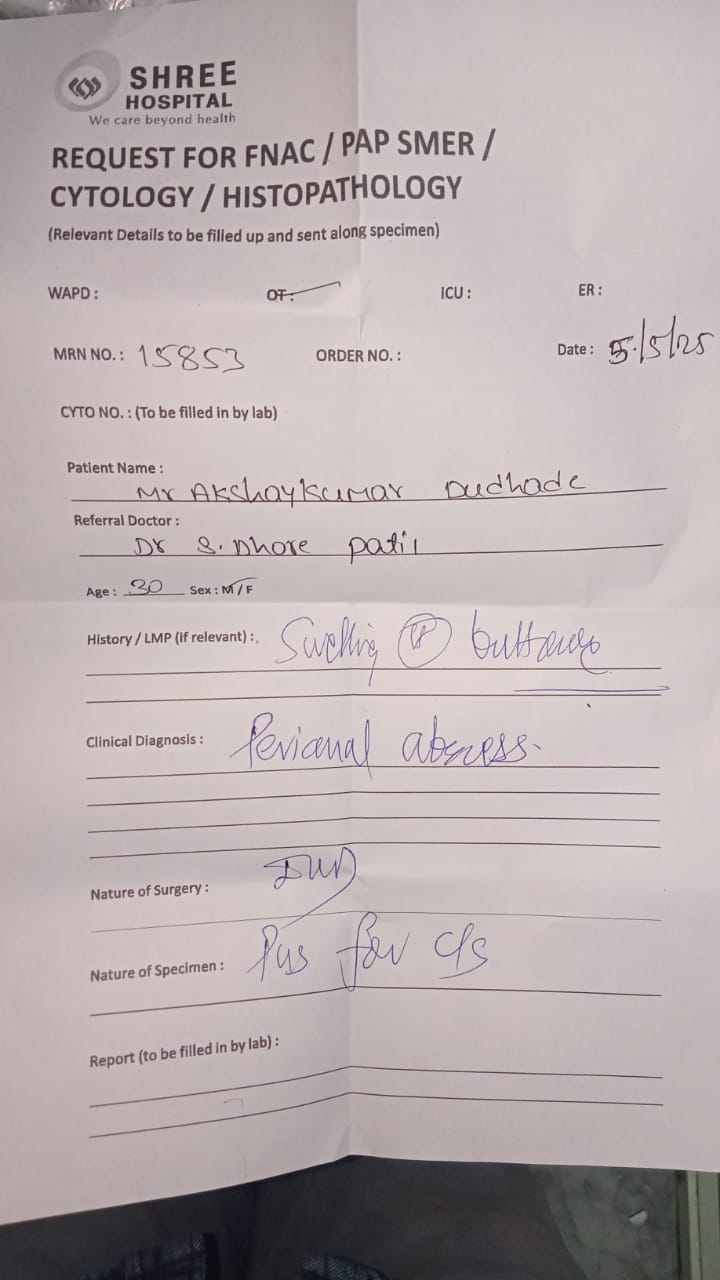 SHREE
HOSPITAL
We care beyond health
REQUEST FOR FNAC / PAP SMER /
CYTOLOGY / HISTOPATHOLOGY
(Relevant Details to be filled up and sent along specimen)
WAPD : OT : ICU : ER :
MRN NO. : 15853 ORDER NO. : Date : 5/5/25
CYTO NO. : (To be filled in by lab)
Patient Name :
Mr Akshaykumar Dudhade
Referral Doctor :
Dr S. Dhore patil
Age : 30 Sex : M / F
History / LMP (if relevant) : Swelling
Clinical Diagnosis : Perianal abscess.
Nature of Surgery :
Nature of Specimen : Pus for c/s
Report (to be filled in by lab) :